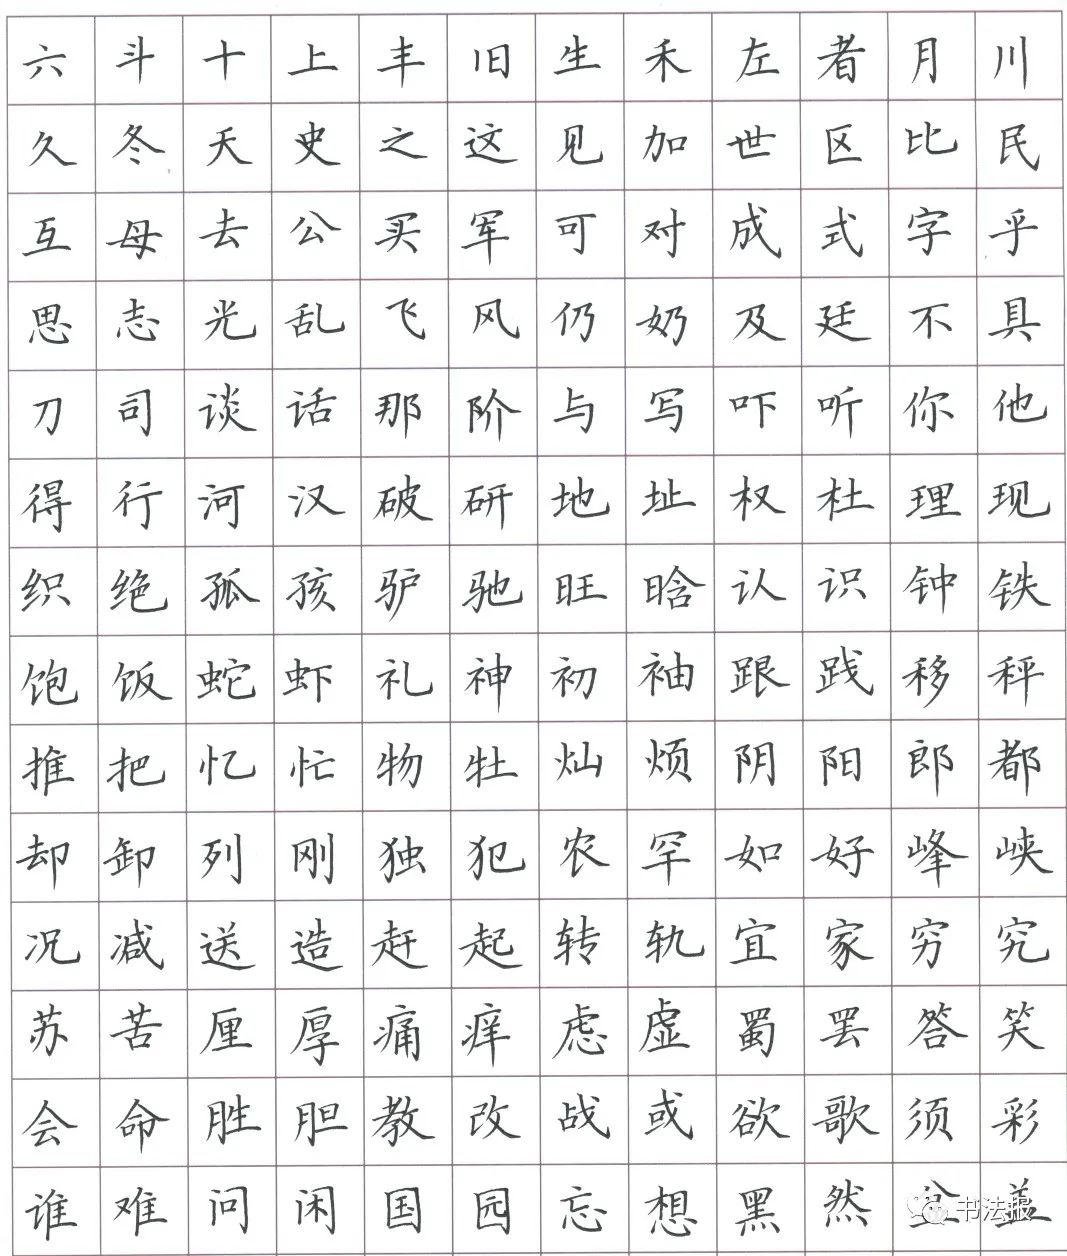 六斗十上丰旧生禾左者月川
久冬天史之这见加世区比民
互母去公买军可对成式字乎
思志光乱飞风仍奶及廷不具
刀司谈话那阶与写吓听你他
得行河汉破研地址权杜理现
织绝孤孩驴驰旺晗认识钟铁
饱饭蛇虾礼神初袖跟践移秤
推把忆忙物牡灿烦阴阳郎都
却卸列刚独犯农罕如好峰峡
况减送造赶起转轨宜家穷究
苏苦厘厚痛痒虑虚蜀罢答笑
会命胜胆教改战或欲歌须彩
谁难问闲国园忘想黑然
书法报